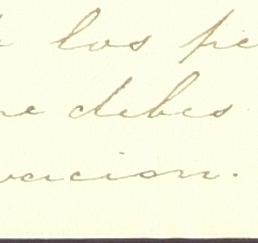 los pe
re debes
vacion.